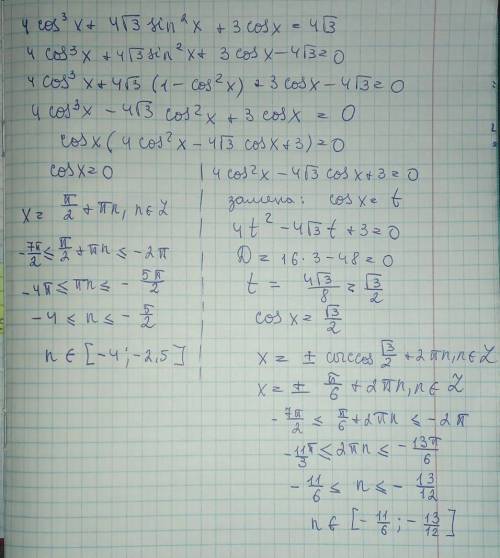 4 cos³x + 4√3 sin²x + 3 cosx = 4√3
4 cos³x + 4√3 sin²x + 3 cosx - 4√3 = 0
4 cos³x + 4√3 (1 - cos²x) + 3 cosx - 4√3 = 0
4 cos³x - 4√3 cos²x + 3 cosx = 0
cosx (4 cos²x - 4√3 cosx + 3) = 0
cosx = 0
x = π/2 + πn, n ∈ Z
-7π/2 ≤ π/2 + πn ≤ -2π
-4π ≤ πn ≤ -5π/2
-4 ≤ n ≤ -5/2
n ∈ [-4; -2,5]
4 cos²x - 4√3 cosx + 3 = 0
замена: cosx = t
4t² - 4√3 t + 3 = 0
D = 16·3 - 48 = 0
t = 4√3/8 = √3/2
cosx = √3/2
x = ± arccos √3/2 + 2πn, n ∈ Z
x = ± π/6 + 2πn, n ∈ Z
-7π/2 ≤ π/6 + 2πn ≤ -2π
-11π/3 ≤ 2πn ≤ -13π/6
-11/6 ≤ n ≤ -13/12
n ∈ [-11/6; -13/12]